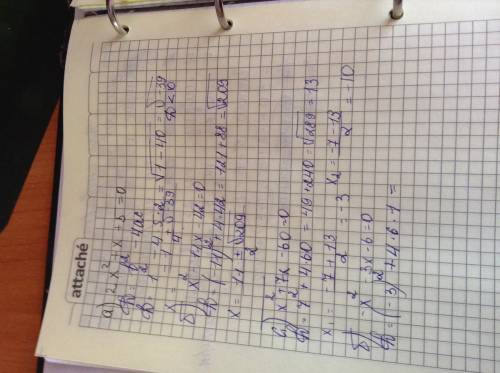 attaché
а) 2x² - x + 5 = 0
D = b² - 4ac
D = 1² - 4·5·2 = √1-40 = √-39
x = -1 ± √-39 / 4 D < 0
б) x² - 11x - 22 = 0
D = (-11)² + 4·22 = 121 + 88 = √209
x = 11 ± √209 / 2
x² + 7x - 60 = 0
D = 7² + 4·60 = 49 + 240 = √289 = 13
x₁ = -7 + 13 / 2 = -3 x₂ = -7 - 13 / 2 = -10
-x² - 3x - 6 = 0
D = (-3)² + 4·6·1 =